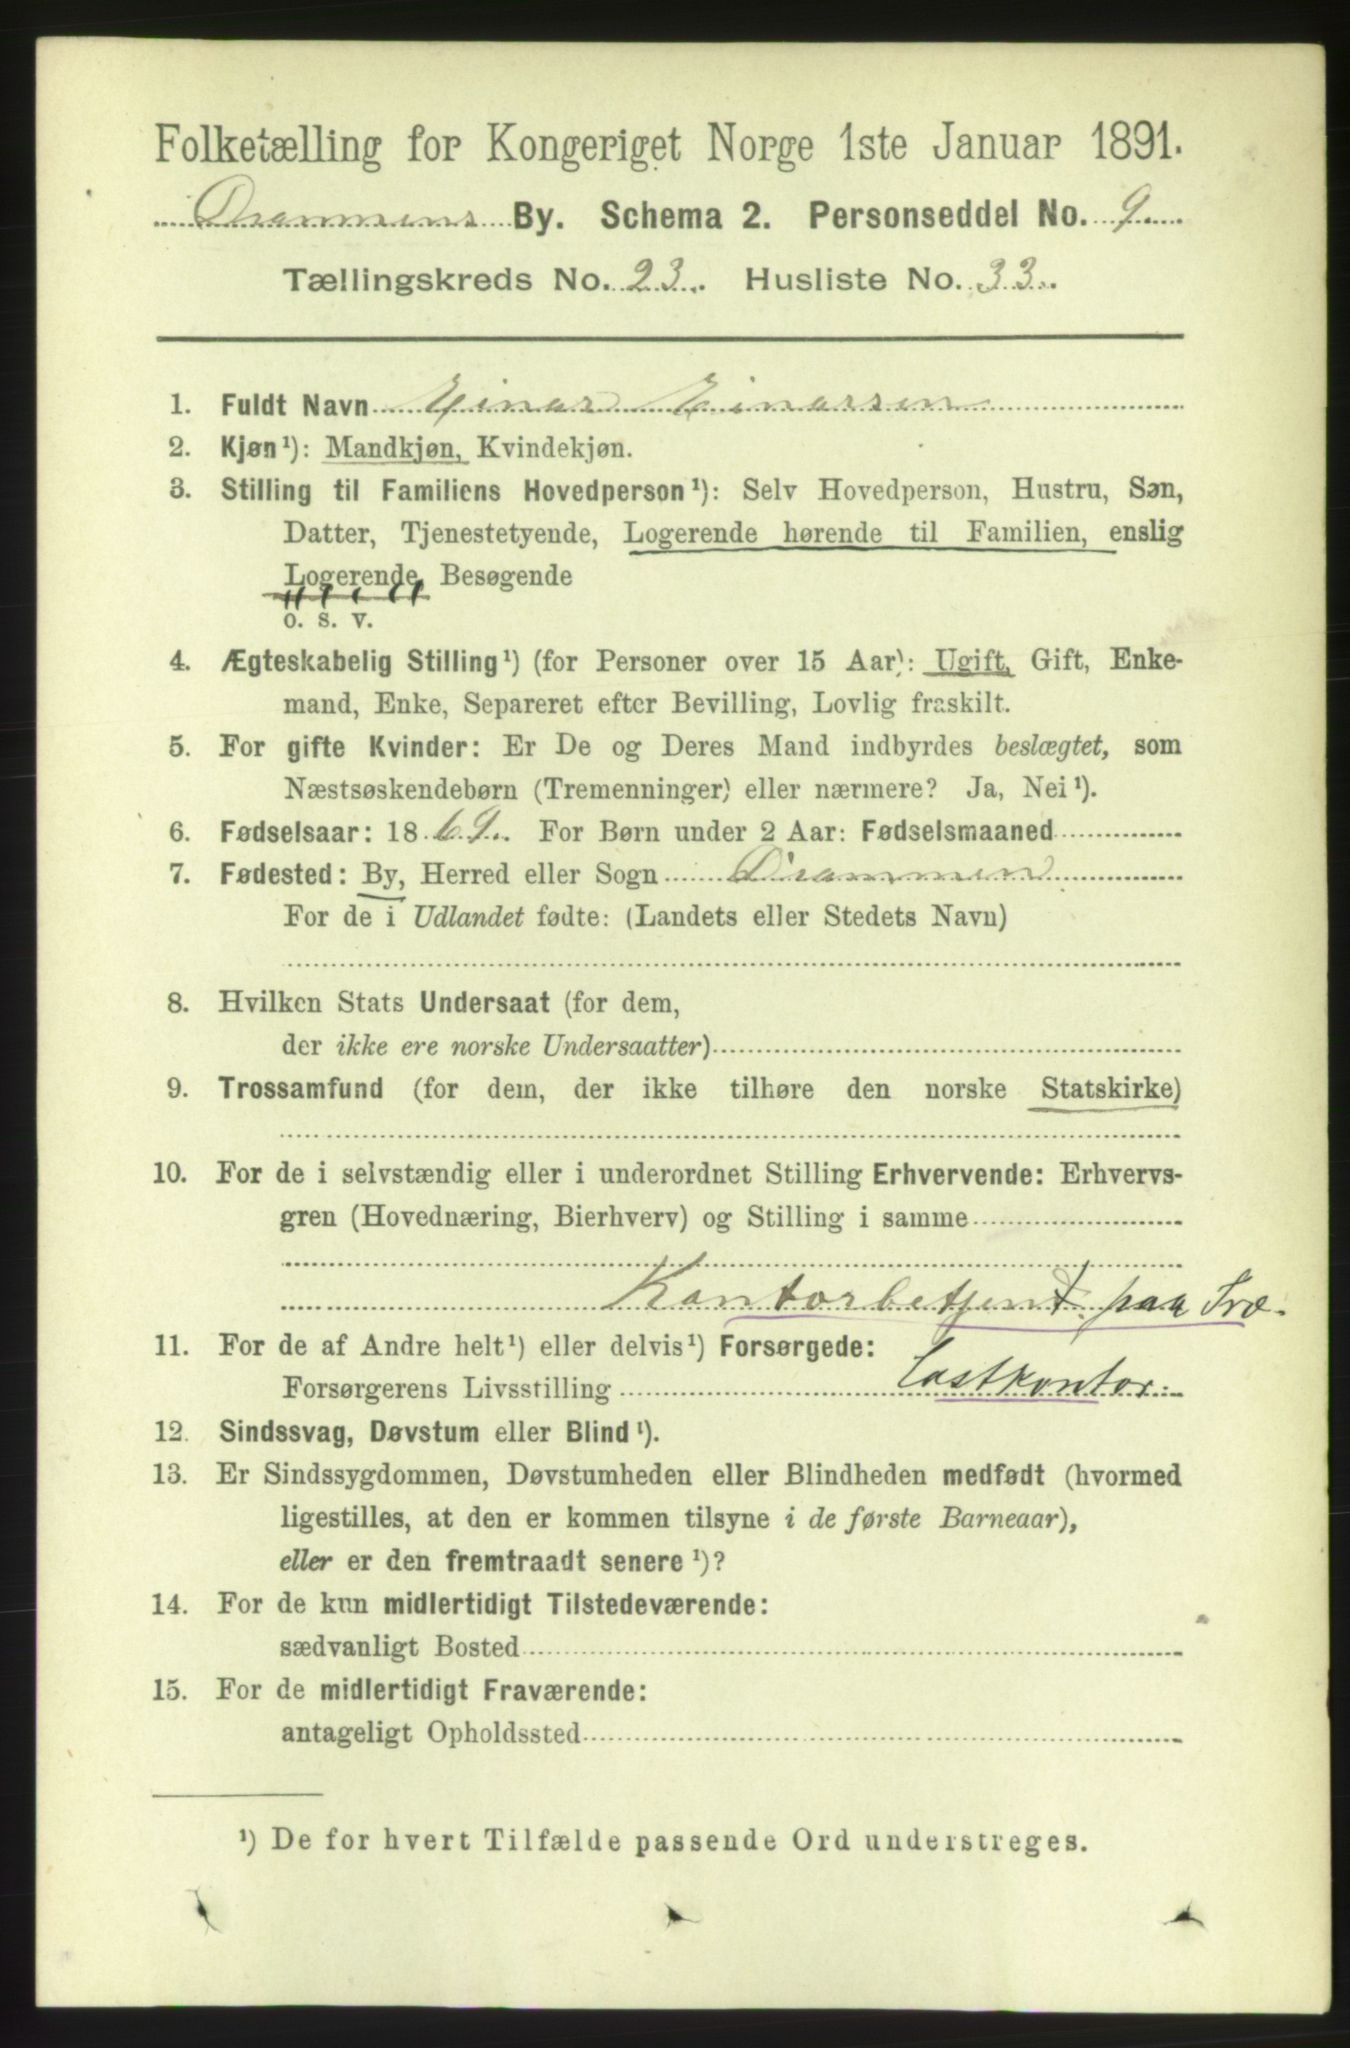 Folketælling for Kongeriget Norge 1ste Januar 1891.
Drammens By. Schema 2. Personseddel No. 9.
Tællingskreds No. 23. Husliste No. 33.
1. Fuldt Navn Einar Einarsen
2. Kjøn¹): Mandkjøn, Kvindekjøn.
3. Stilling til Familiens Hovedperson¹): Selv Hovedperson, Hustru, Søn,
Datter, Tjenestetyende, Logerende hørende til Familien, enslig
Logerende, Besøgende
o. s. v.
4. Ægteskabelig Stilling¹) (for Personer over 15 Aar): Ugift, Gift, Enke-
mand, Enke, Separeret efter Bevilling, Lovlig fraskilt.
5. For gifte Kvinder: Er De og Deres Mand indbyrdes beslægtet, som
Næstsøskendebørn (Tremenninger) eller nærmere? Ja, Nei¹).
6. Fødselsaar: 1869. For Børn under 2 Aar: Fødselsmaaned
7. Fødested: By, Herred eller Sogn Drammen
For de i Udlandet fødte: (Landets eller Stedets Navn)
8. Hvilken Stats Undersaat (for dem,
der ikke ere norske Undersaatter)
9. Trossamfund (for dem, der ikke tilhøre den norske Statskirke)
10. For de i selvstændig eller i underordnet Stilling Erhvervende: Erhvervs-
gren (Hovednæring, Bierhverv) og Stilling i samme
Kontorbetjent paa Træ-
11. For de af Andre helt¹) eller delvis¹) Forsørgede:
lastkontor.
Forsørgerens Livsstilling
12. Sindssvag, Døvstum eller Blind¹).
13. Er Sindssygdommen, Døvstumheden eller Blindheden medfødt (hvormed
ligestilles, at den er kommen tilsyne i de første Barneaar),
eller er den fremtraadt senere¹)?
14. For de kun midlertidigt Tilstedeværende:
sædvanligt Bosted
15. For de midlertidigt Fraværende:
antageligt Opholdssted
¹) De for hvert Tilfælde passende Ord understreges.